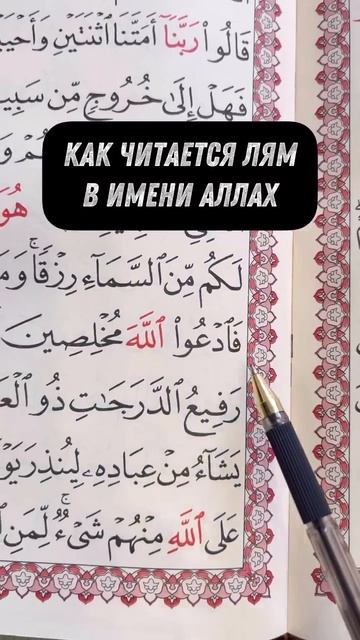 قَالُوا۟ رَبَّنَآ أَمَتَّنَا ٱثْنَتَيْنِ
فَهَلْ إِلَىٰ خُرُوجٍ مِّن
КАК ЧИТАЕТСЯ ЛЯМ
В ИМЕНИ АЛЛАХ
لَكُم مِّنَ ٱلسَّمَآءِ رِزْقًا ۚ
فَٱدْعُوا۟ ٱللَّهَ مُخْلِصِينَ
رَفِيعُ ٱلدَّرَجَـٰتِ ذُو
يَشَآءُ مِنْ عِبَادِهِۦ لِيُنذِرَ
عَلَى ٱللَّهِ مِنْهُمْ شَىْءٌ ۚ لِّمَنِ